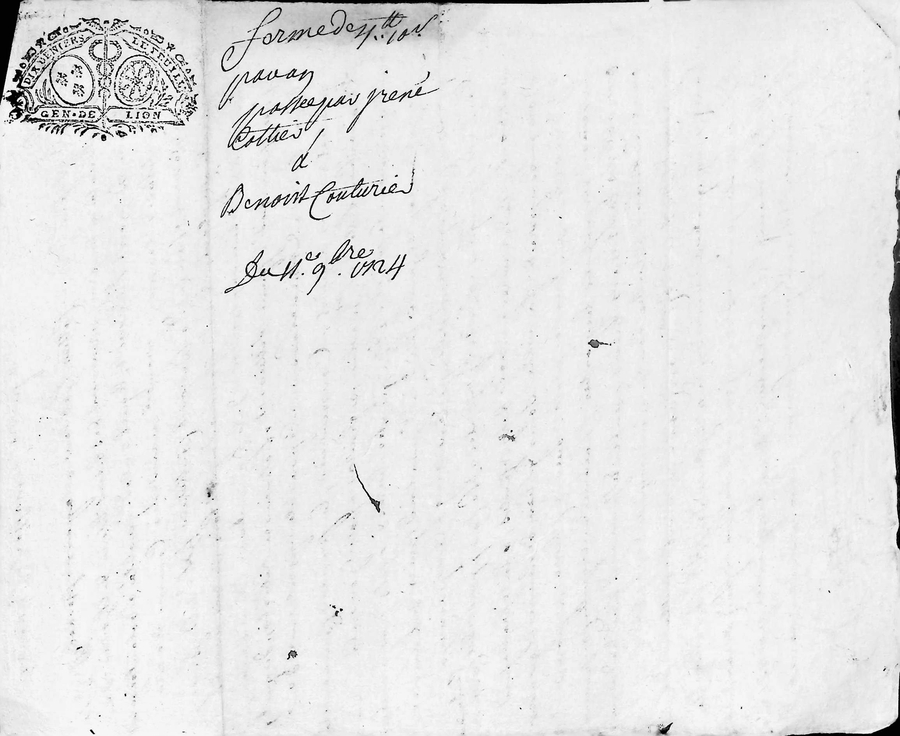 DIX DENIERS LE FEUILLET
GEN · DE LION
ferme de 4.tt 10s
par an
passée par jrené
Cottier
a
Benoist Couturier
Du 11.e 9.bre 1724